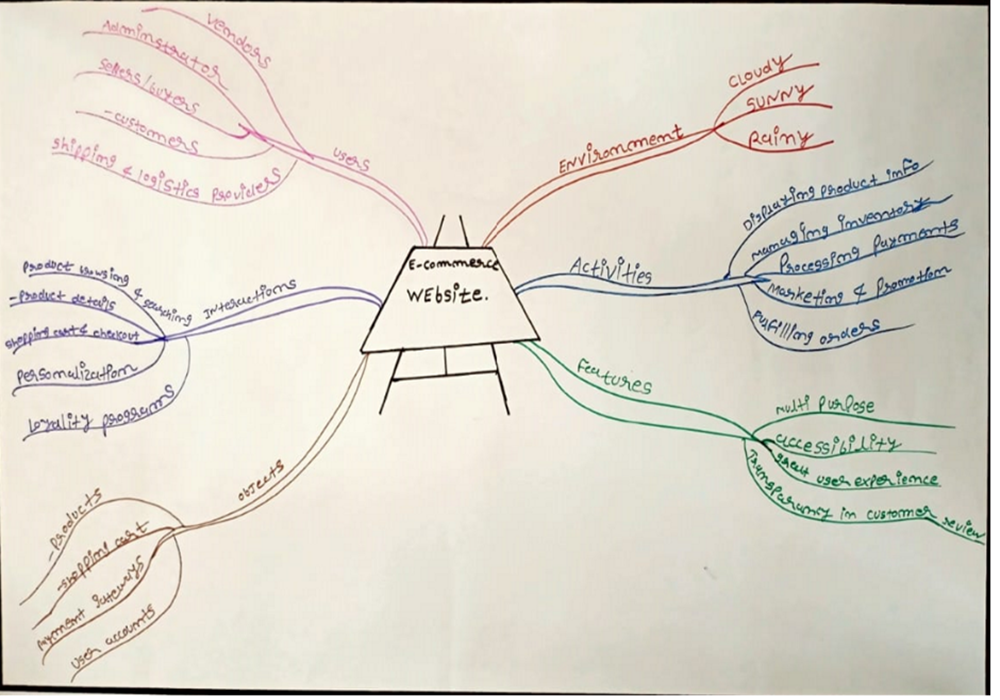 E-commerce
WEbsite.
Users
Vendors
Adminstrator
Sellers/buyers
-customers
Shipping & logistics providers
Environment
Cloudy
SUNNY
Rainy
Activities
Displaying product info
Managing inventory
Processing Payments
Marketing & Promotion
Fulfilling orders
Features
Multi Purpose
accessibility
great user experience
Transparancy in customer review
Interactions
Product browsing & searching
-Product details
Shopping cart & checkout
Personalization
Loyality programs
objects
-Products
-shopping cart
Payment gateways
User accounts